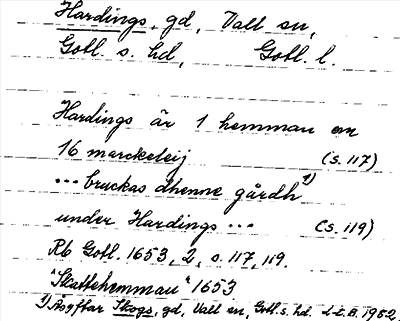 Hardings, gd, Vall sn,
Gotl. s. hd, Gotl. l.
Hardings är 1 hemman om
16 marckeleij (s. 117)
... bruckas dhenne gårdh 1)
under Hardings ... (s. 119)
Rb Gotl. 1653, 2, s. 117, 119.
"Skattehemman" 1653
1) Åsyftar Skogs, gd, Vall sn, Gotl. s. hd. L.L.B. 1952.